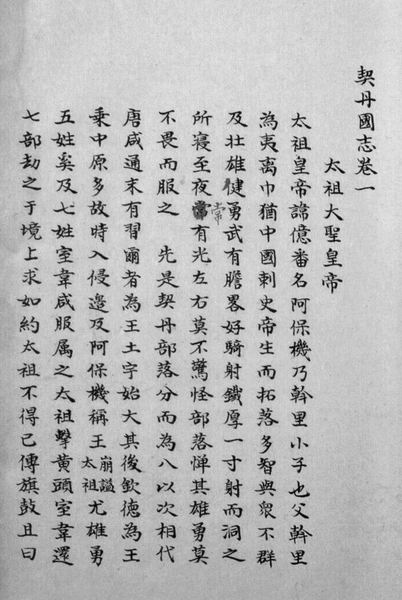 契丹國志卷一
太祖大聖皇帝
太祖皇帝諱億番名阿保機乃斡里小子也父斡里
為夷离巾猶中國刺史帝生而拓落多智與眾不群
及壯雄健勇武有膽畧好騎射鐵厚一寸射而洞之
所寢至夜常有光左右莫不驚怪部落憚其雄勇莫
不畏而服之 先是契丹部落分而為八以次相代
唐咸通末有習爾者為王土宇始大其後欽德為王
乘中原多故時入侵邊及阿保機稱王崩謚太祖尤雄勇
五姓奚及七姓室韋咸服属之太祖擊黄頭室韋還
七部劫之于境上求如約太祖不得已傳旗鼓且曰